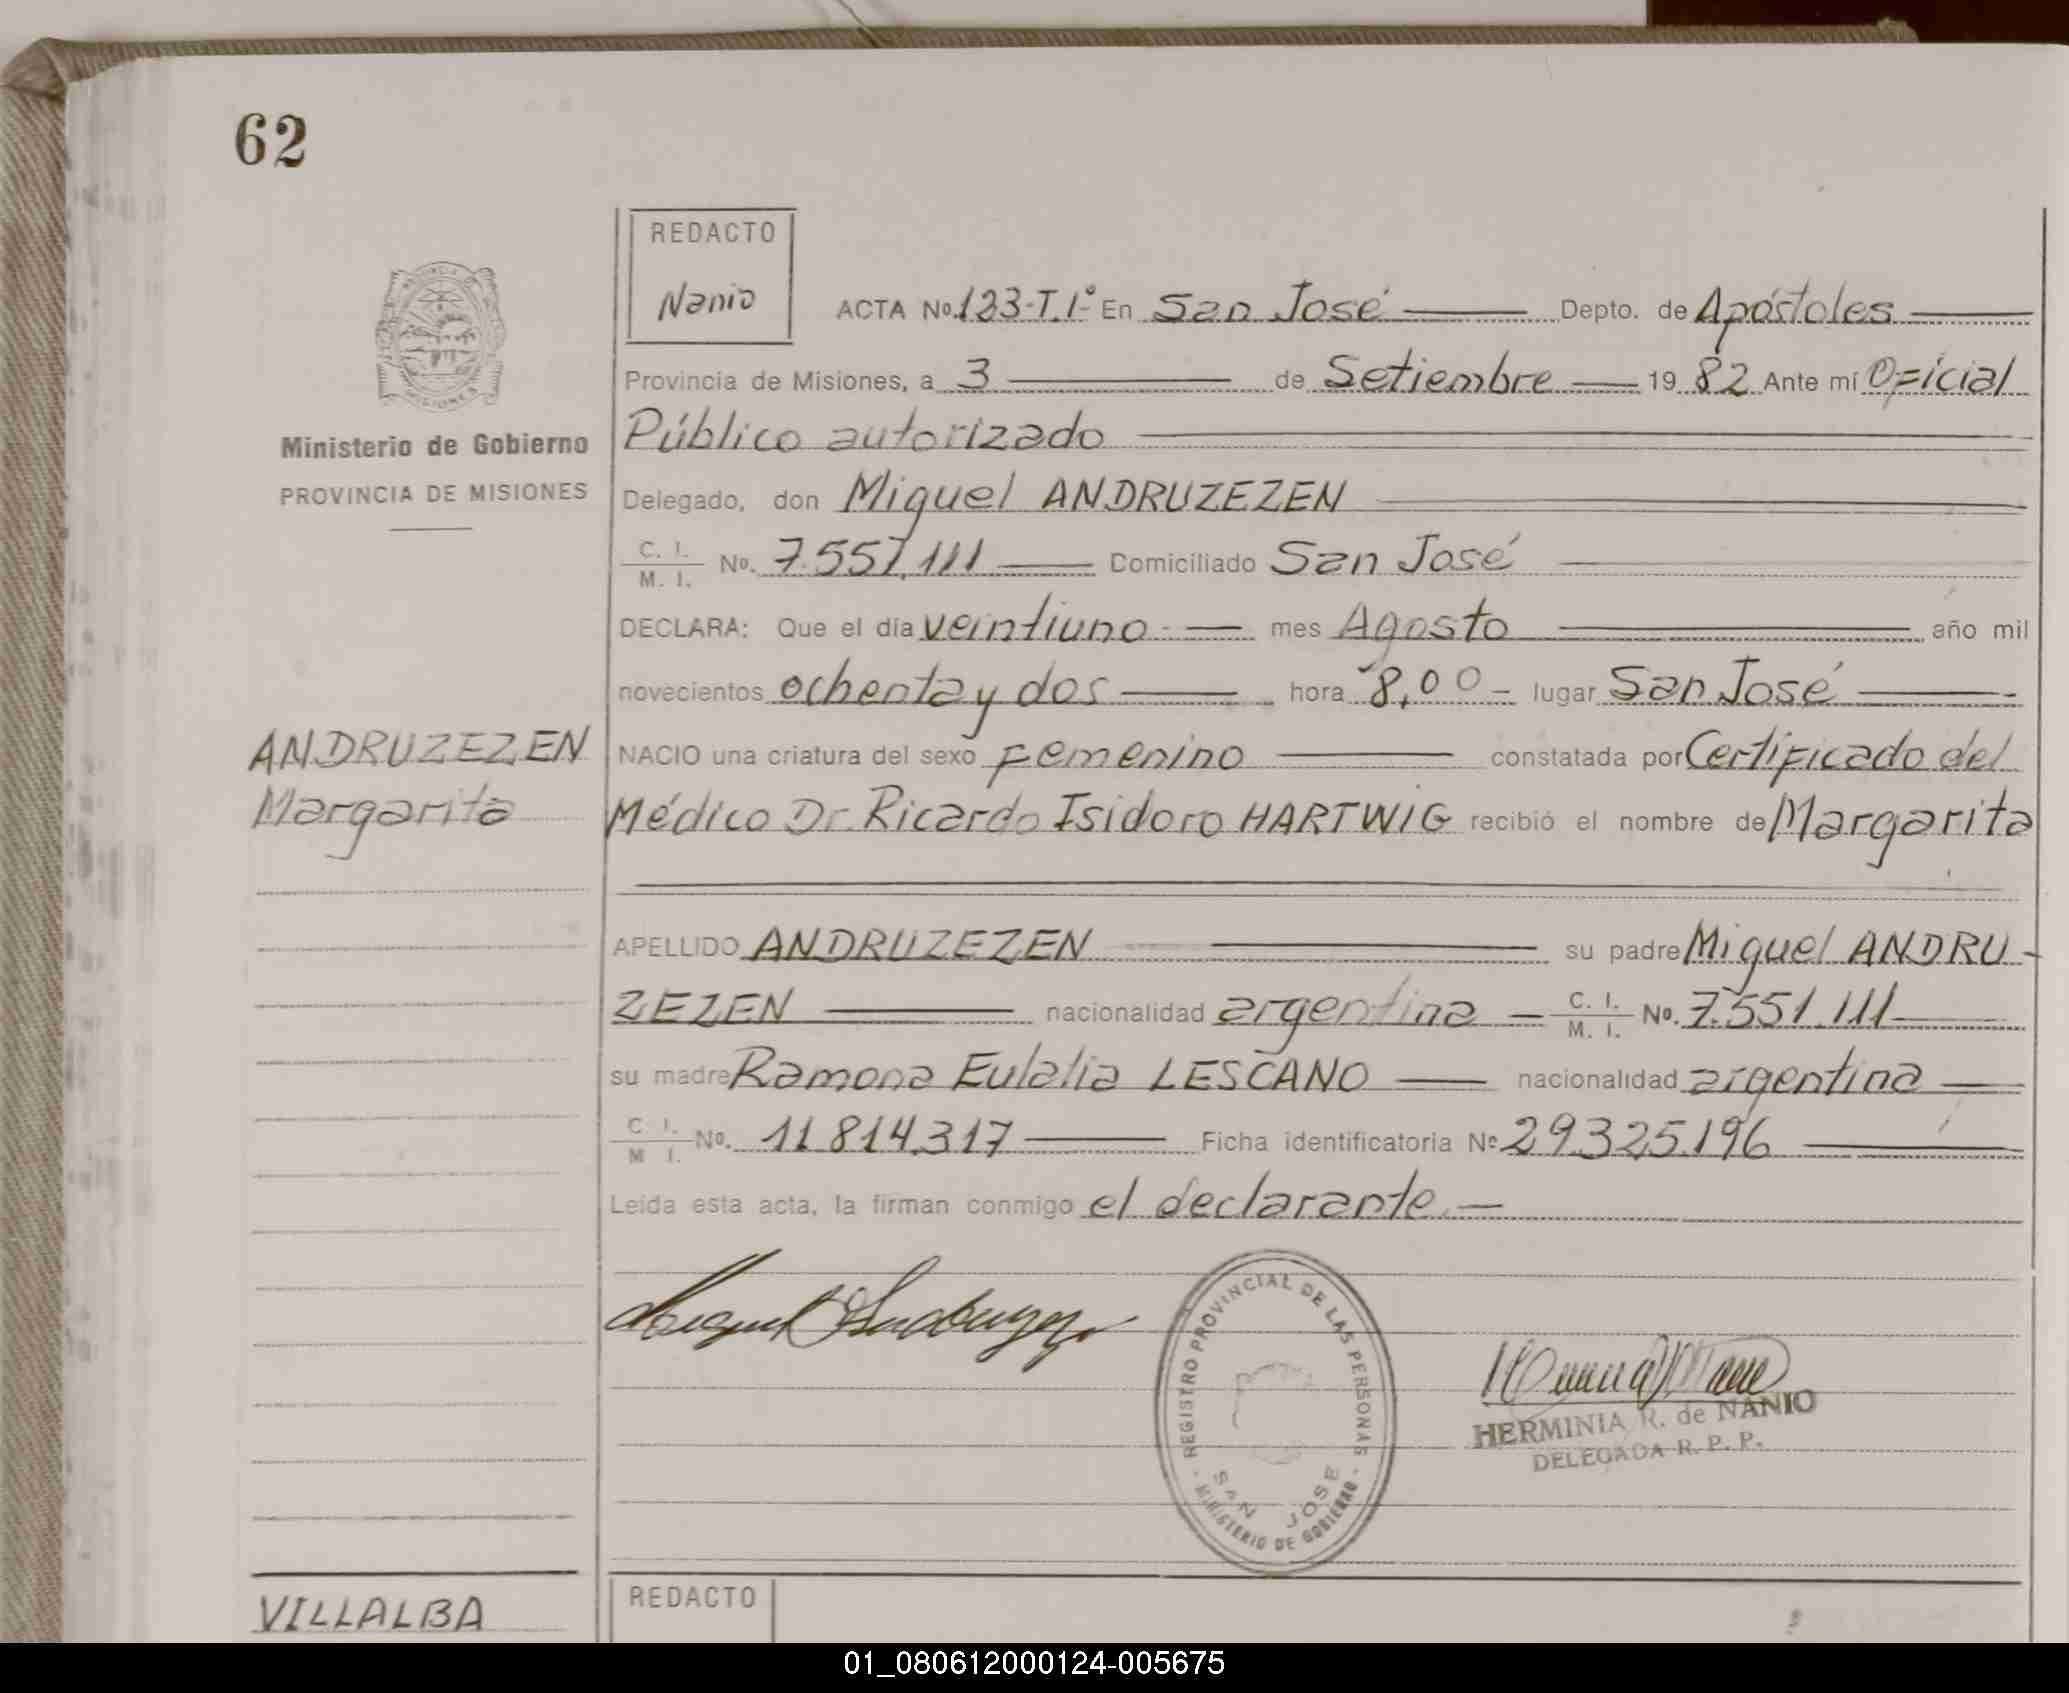 62
REDACTO
Nanio
ACTA No. 123-T.1º En San José Depto. de Apóstoles
Provincia de Misiones, a 3 de Setiembre 1982 Ante mí Oficial
Público autorizado
Ministerio de Gobierno
PROVINCIA DE MISIONES
Delegado, don Miguel ANDRUZEZEN
C. I. / M. I. No. 7.551.111 Domiciliado San José
DECLARA: Que el día veintiuno mes Agosto año mil
novecientos ochenta y dos hora 8,00 lugar San José
ANDRUZEZEN
Margarita
NACIO una criatura del sexo femenino constatada por Certificado del
Médico Dr. Ricardo Isidoro HARTWIG recibió el nombre de Margarita
APELLIDO ANDRUZEZEN su padre Miguel ANDRU-
ZEZEN nacionalidad argentina C. I. / M. I. No. 7.551.111
su madre Ramona Eulalia LESCANO nacionalidad argentina
C. I. / M. I. No. 11.814.317 Ficha identificatoria No 29.325.196
Leída esta acta, la firman conmigo el declarante.
REGISTRO PROVINCIAL DE LAS PERSONAS
SAN JOSE
MINISTERIO DE GOBIERNO
HERMINIA R. de NANIO
DELEGADA R. P. P.
VILLALBA
REDACTO
01_080612000124-005675